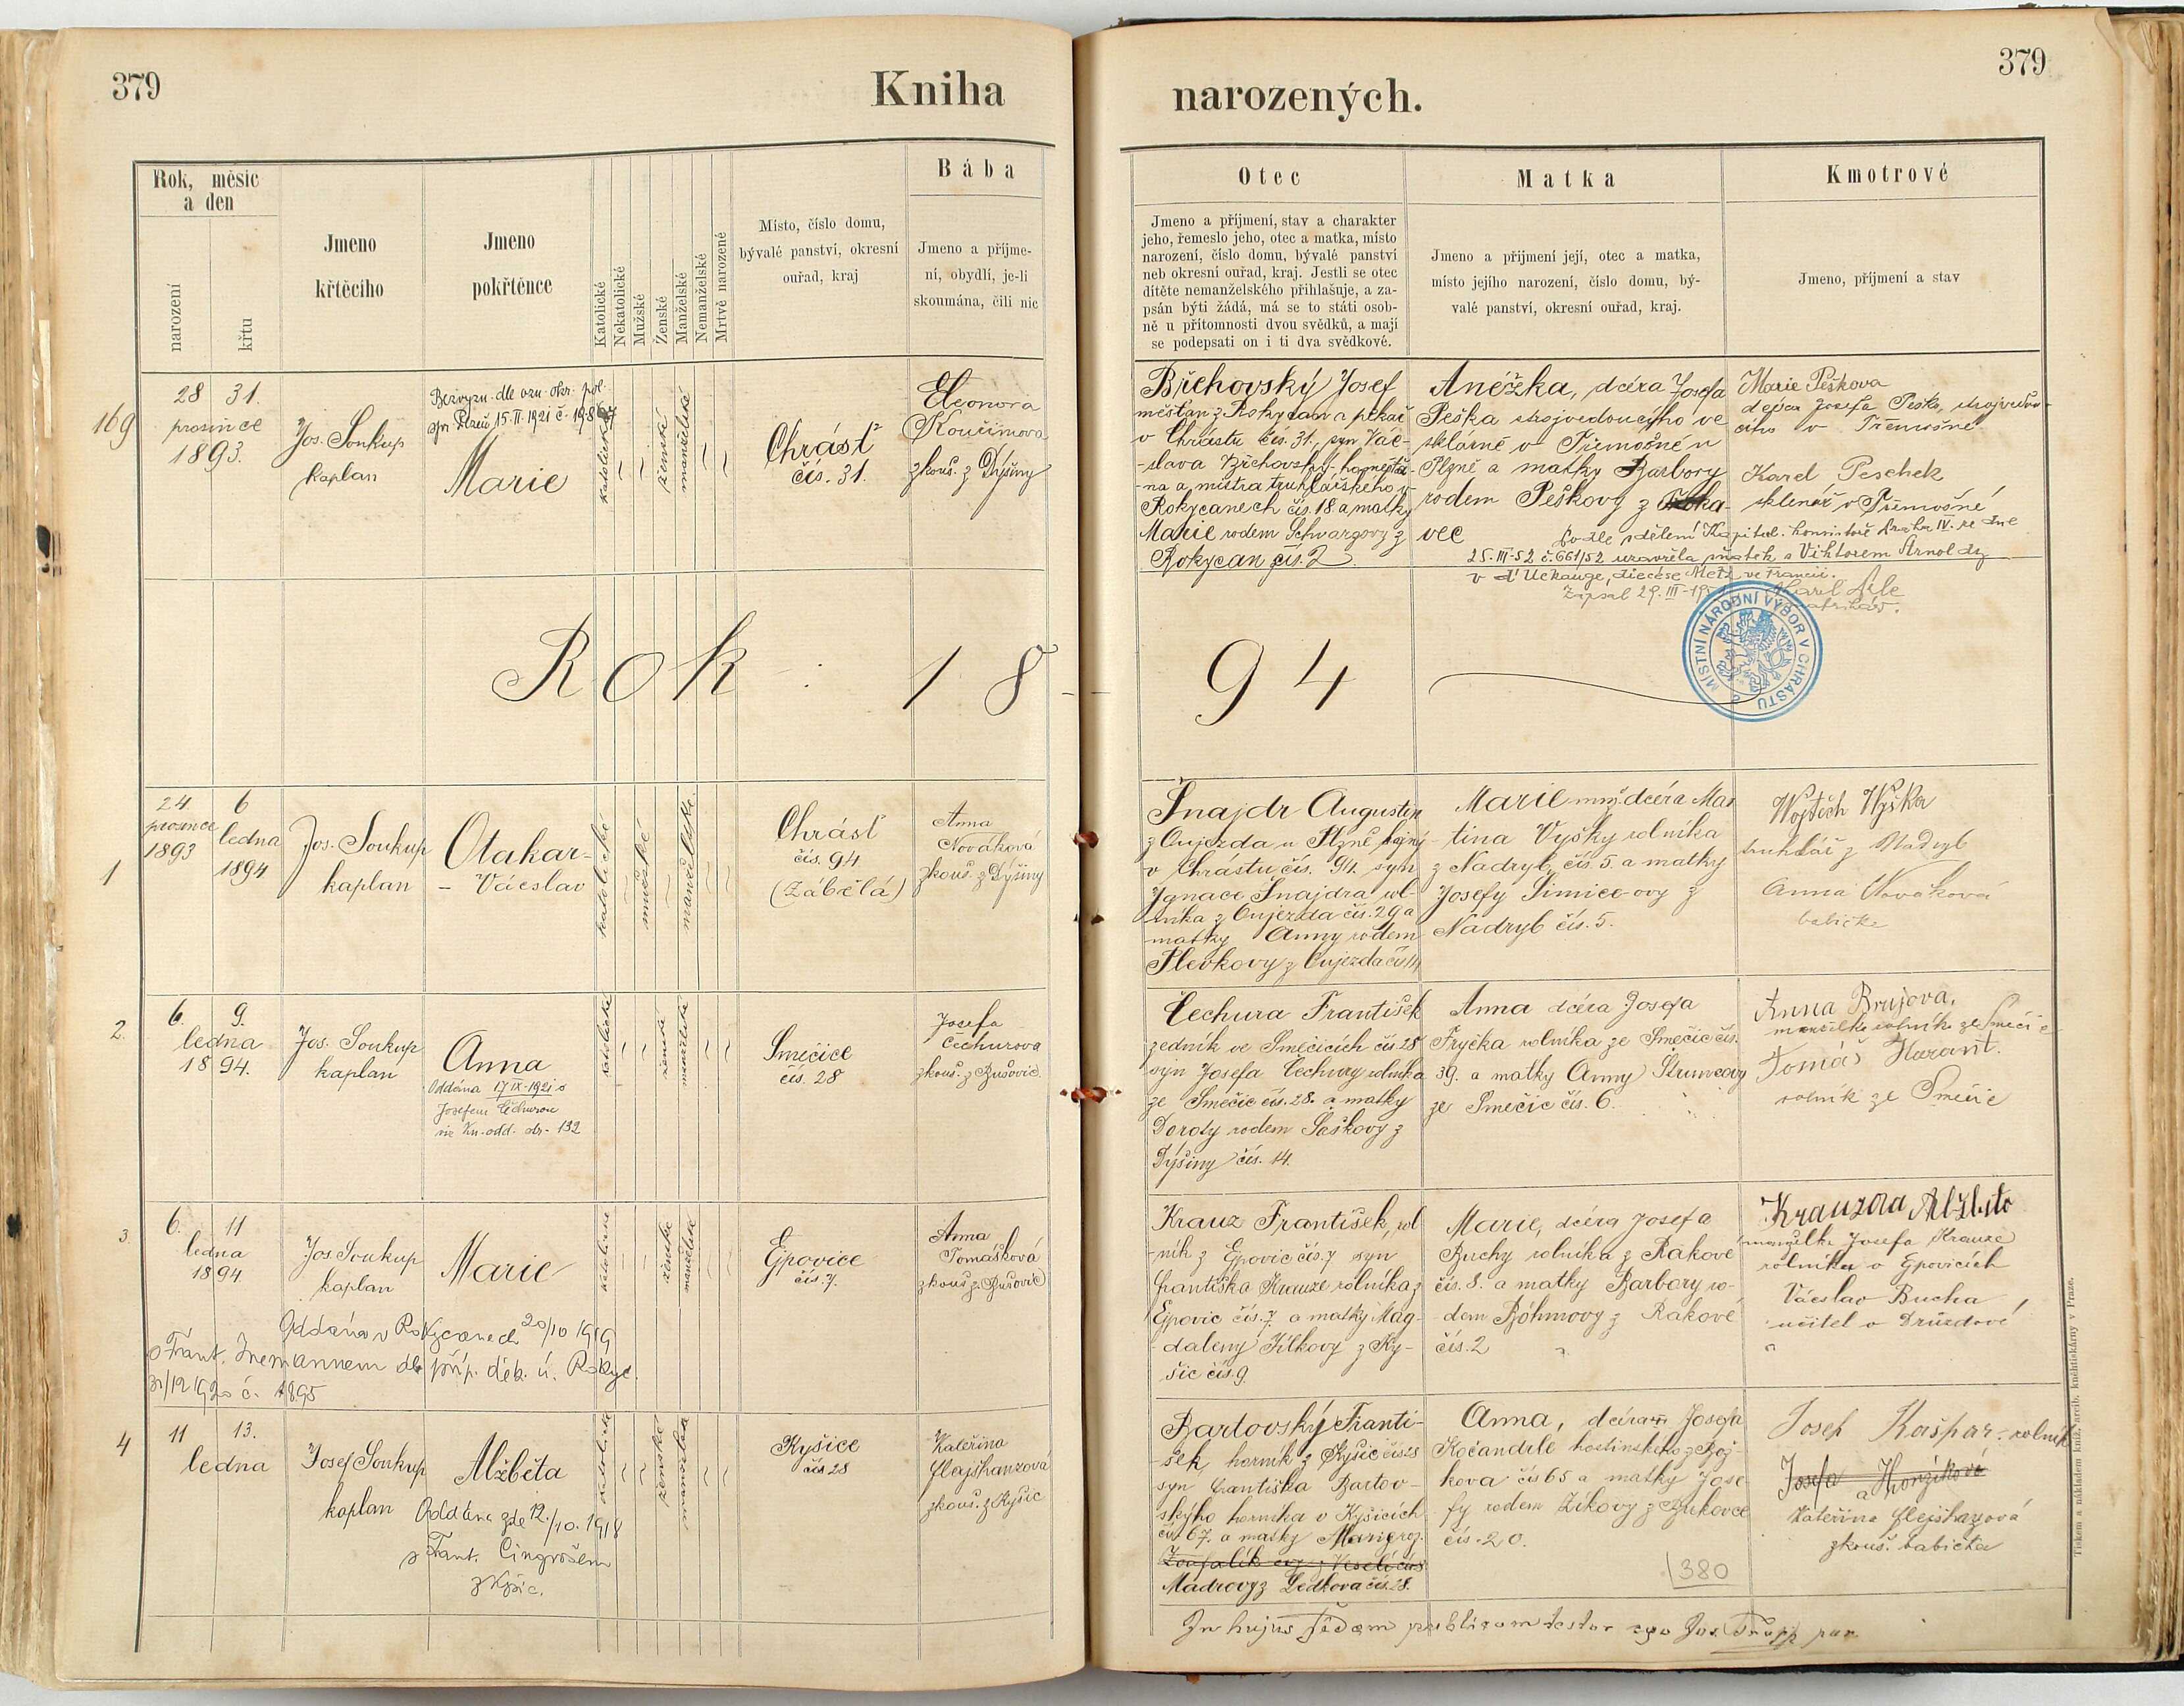 379
Kniha
narozených.
379
Rok, měsíc
a den
narození
křtu
Jmeno
křtěcího
Jmeno
pokřtěnce
Katolické
Nekatolické
Mužské
Ženské
Manželské
Nemanželské
Mrtvě narozené
Místo, číslo domu,
bývalé panství, okresní
ouřad, kraj
Bába
Jmeno a příjme-
ní, obydlí, je-li
skoumána, čili nic
Otec
Jmeno a příjmení, stav a charakter
jeho, řemeslo jeho, otec a matka, místo
narození, číslo domu, bývalé panství
neb okresní ouřad, kraj. Jestli se otec
dítěte nemanželského přihlašuje, a za-
psán býti žádá, má se to státi osob-
ně u přítomnosti dvou svědků, a mají
se podepsati on i ti dva svědkové.
Matka
Jmeno a přijmení její, otec a matka,
místo jejího narození, číslo domu, bý-
valé panství, okresní ouřad, kraj.
Kmotrové
Jmeno, příjmení a stav
169
28 31.
prosince
1893.
Jos. Soukup
kaplan
Bezvyzn. dle ozn. okr. pol.
spr. Plzeň 15.II.1921 č.
Marie
katolické
ženské
manželské
Chrást
čís. 31.
Eleonora
Koučimova
zkouš. z Dýšiny
Břehovský Josef
měšťan z Rokycan a pekař
v Chrástu čís. 31., syn Vác-
slava Břehovský-ho měšťa-
na a mistra truhlářského v
Rokycanech čís. 18 a matky
Marie rodem Schwarzovy z
Rokycan čís. 2.
Anéžka, dcéra Josefa
Peška strojvedoucího ve
sklárně v Třemošné u
Plzně a matky Barbory
rodem Peškovy z
vec
Marie Peškova
dcéra Josefa Peška, strojvedou-
cího v Třemošné
Karel Peschek
sklenář v Třemošné
Podle sdělení Kapitul. konsistoře Praha IV. ze dne
25.III-52 č. 661/52 uzavřela sňatek s Viktorem Arnoldy
v d' Uckange, diecése Metz ve Francii.
Zapsal 29.III-19
matrikář.
MÍSTNÍ NÁRODNÍ VÝBOR V CHRÁSTU
Rok 18
94
1
24 6
prosince ledna
1893 1894
Jos. Soukup
kaplan
Otakar-
- Václav
katolické
mužské
manželské
Chrást
čís. 94
(Zábělá)
Anna
Nováková
zkouš. z Dýšiny
Šnajdr Augustin
z Oujezda u Plzně
v Chrástu čís. 94. syn
Ignace Šnajdra rol-
níka z Oujezda čís. 29 a
matky Anny rodem
z Oujezda čís 14
Marie dcéra Mar
tina Vyšky rolníka
z Nadryb čís. 5 a matky
Josefy z
Nadryb čís. 5.
Wojtěch Wyška
truhlář z Nadryb
Anna Nováková
babička
2.
6. 9.
ledna
1894.
Jos. Soukup
kaplan
Anna
Oddána 17.IX-1921 s
Josefem Čechurou
viz Kn. odd. str. 132
katolické
ženské
manželské
Smečice
čís. 28
Josefa
Čechurova
zkouš. z Bušovic.
Čechura František
zedník ve Smečicích čís. 28
syn Josefa Čechury rolníka
ze Smečic čís. 28. a matky
Doroty rodem Šaškovy z
Dýšiny čís. 14.
Anna dcéra Josefa
Fryčka rolníka ze Smečic čís.
39. a matky Anny
ze Smečic čís. 6.
Anna Brujova,
manželka rolníka ze Smečic
Tomáš Harant.
rolník ze Smečic
3.
6. 11
ledna
1894
Jos. Soukup
kaplan
Marie
katolické
ženské
manželské
Ejpovice
čís. 7.
Anna
Tomášková
zkouš. z Bušovic
Oddána v Rokycanech 20/10 1919
s Frant. dle příp. děk. ú. Rokyc.
31/12 1920 č. 1895
Krauz František, rol
-ník z Ejpovic čís. 7 syn
Františka Krauze rolníka z
Ejpovic čís. 7. a matky Mag-
daleny Kilkovy z Ky-
šic čís. 9.
Marie, dcéra Josefa
Buchy rolníka z Rakové
čís. 8. a matky Barbory ro-
dem Böhmovy z Rakové
čís. 2
Krauzova Alžběta
manželka Josefa Krauze
rolníka v Ejpovicích
Václav Bucha
učitel v Drůzdové
4
11 13.
ledna
Josef Soukup
kaplan
Alžběta
Oddána zde 12./10. 1918
s Frant. Cingrošem
z Kyšic.
katolické
ženské
manželské
Kyšice
čís 28
Kateřina
Flajšhanzová
zkouš. z Kyšic
Bartovský Franti-
šek horník z Kyšic čís 28
syn Františka Bartov-
ského horníka v Kyšicích
čís. 67. a matky Marie roz.
Mádrovy z Ledkova čís. 28.
Anna, dcéra Josefa
Kočandrle hostinského z Boj-
kova čís 65 a matky Jose
fy rodem Zikovy z Bukovce
čís. 20.
380
Josef Kašpar - rolník
Josefa Honzíková
a
Kateřina Flejšhanzová
zkouš. babička
In hujus fidem publicam testor ego Jos. par.
Tiskem a nákladem kníž. arcib. kněhtiskárny v Praze.